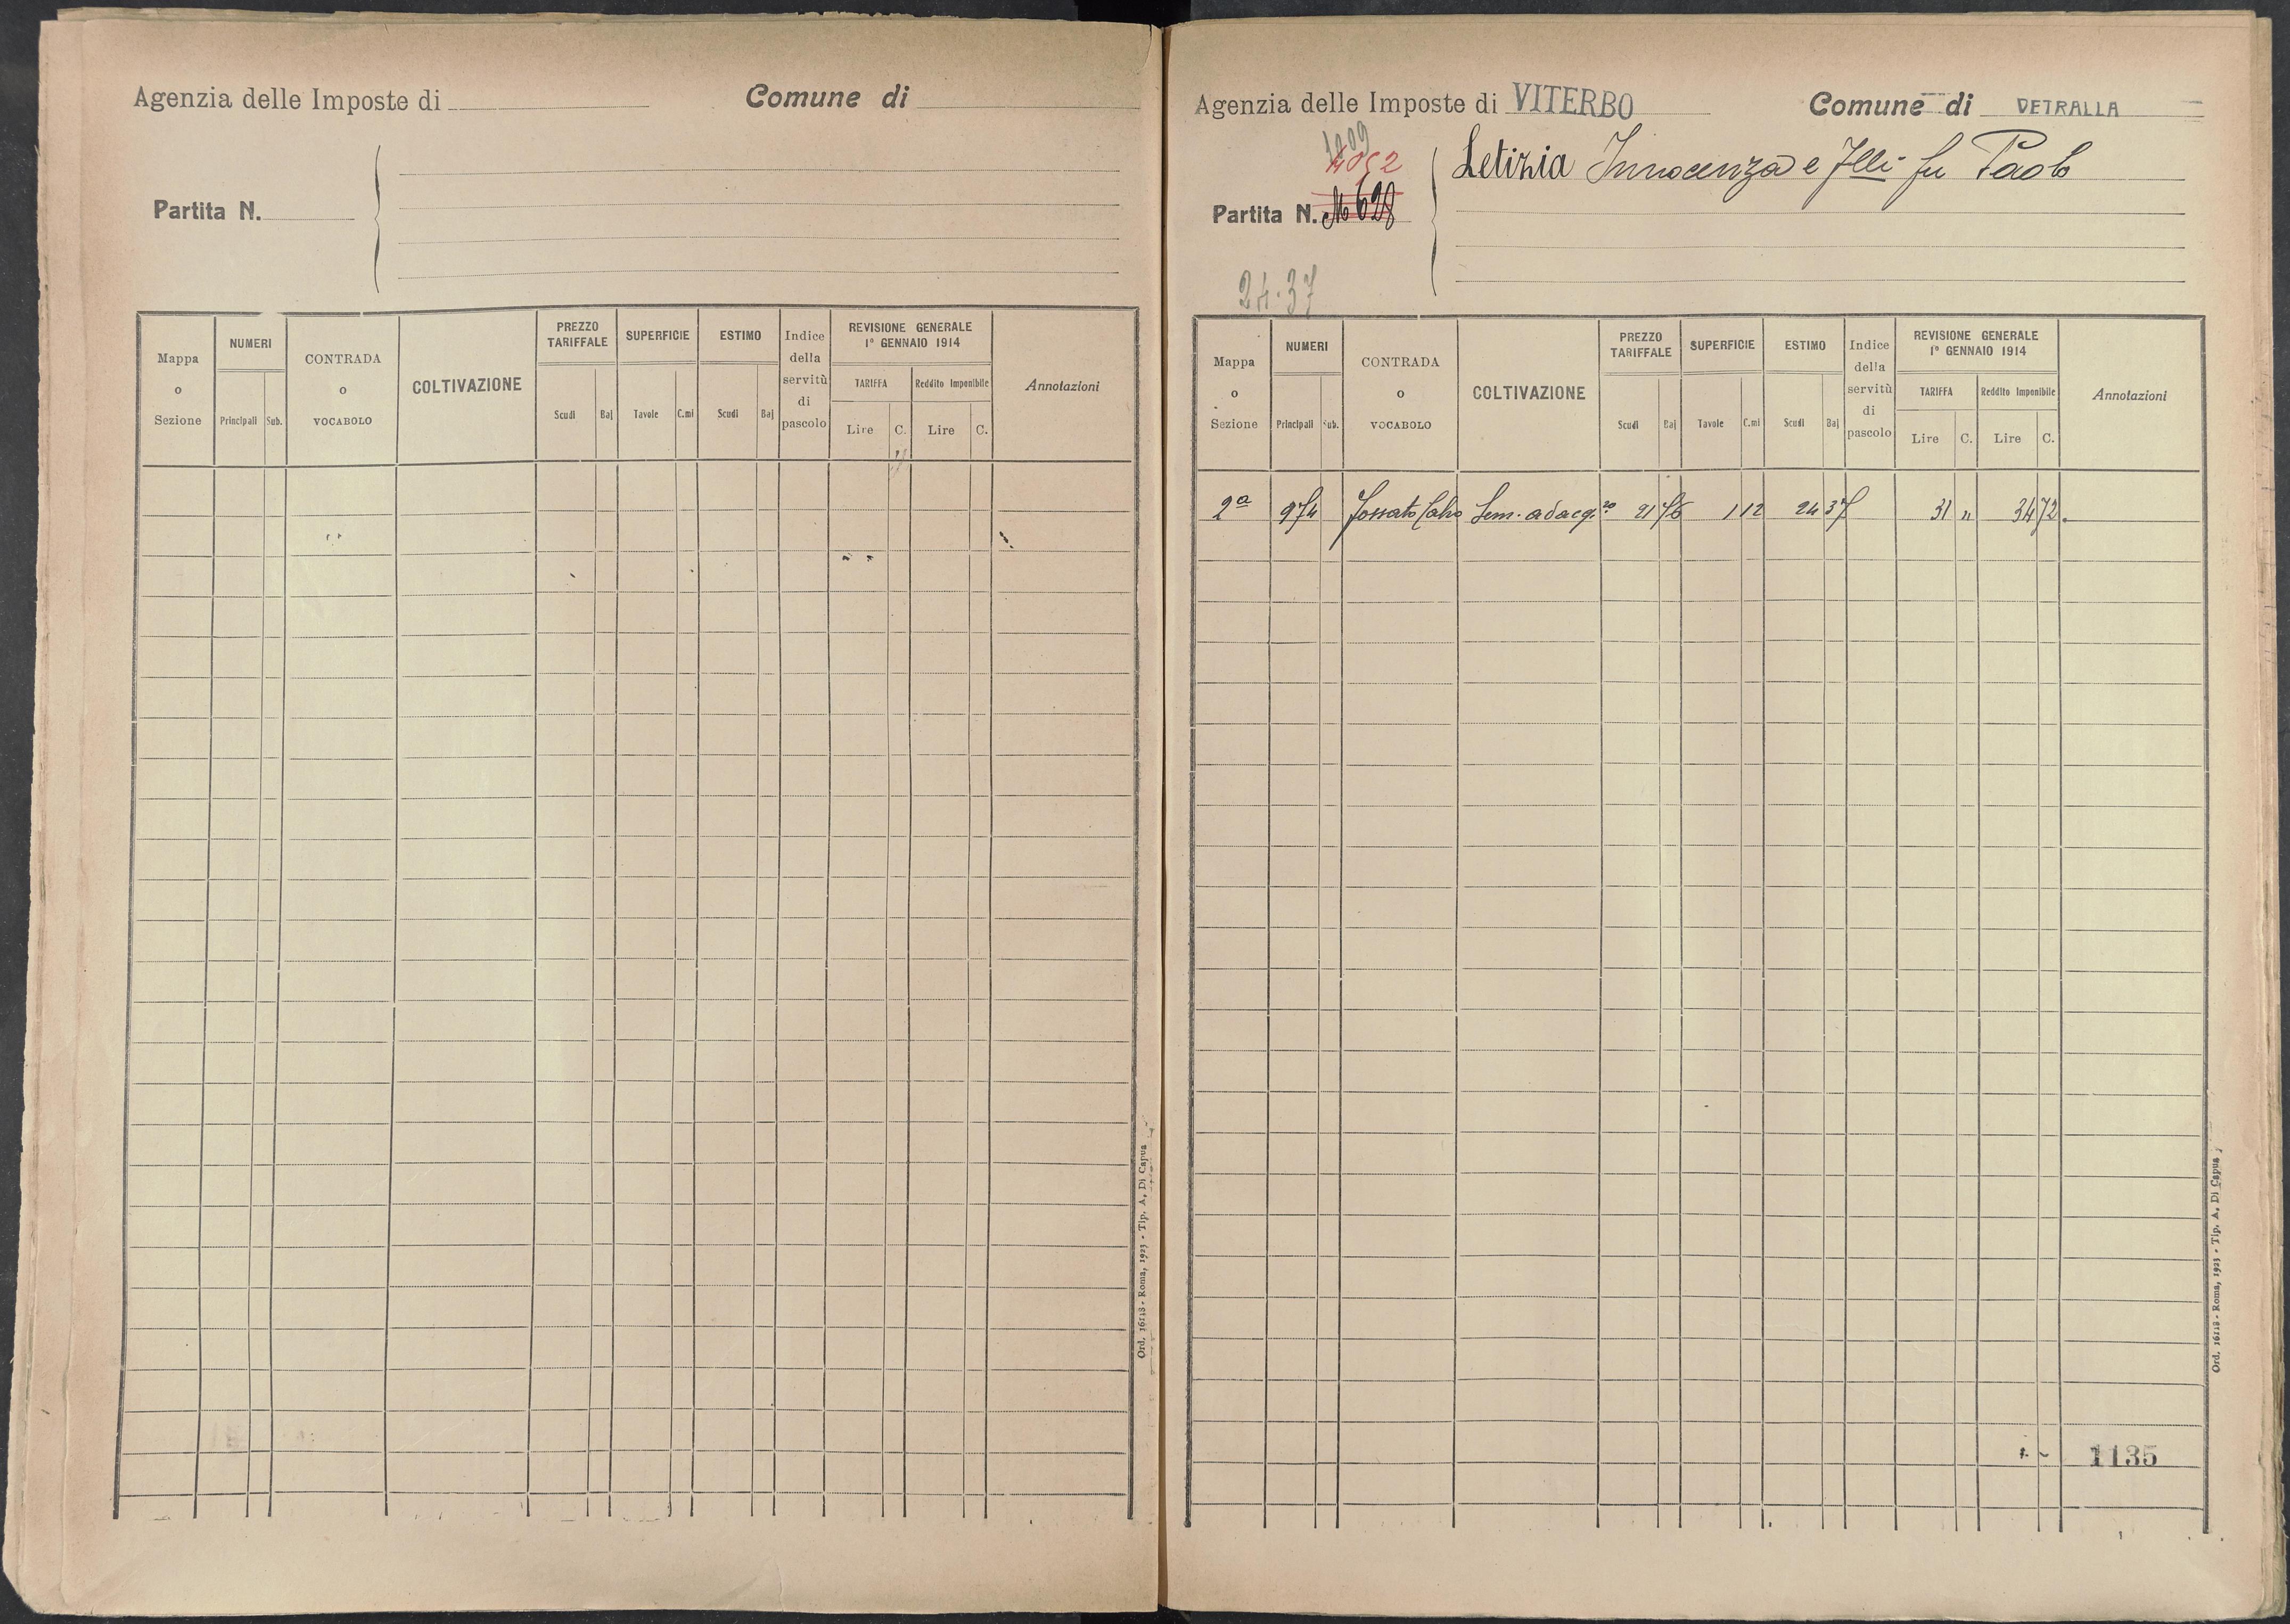 Agenzia delle Imposte di
Comune di
Partita N.
Mappa o Sezione
NUMERI
Principali
Sub.
CONTRADA o VOCABOLO
COLTIVAZIONE
PREZZO TARIFFALE
Scudi
Baj
SUPERFICIE
Tavole
C.mi
ESTIMO
Scudi
Baj
Indice della servitù di pascolo
REVISIONE GENERALE
1° GENNAIO 1914
TARIFFA
Lire
C.
Reddito Imponibile
Lire
C.
Annotazioni
Ord. 16118 - Roma, 1923 - Tip. A. Di Capua
Agenzia delle Imposte di VITERBO
Comune di VETRALLA
4052
Partita N. 628
Letizia Innocenza e Flli fu Paolo
24.37
Mappa o Sezione
NUMERI
Principali
Sub.
CONTRADA o VOCABOLO
COLTIVAZIONE
PREZZO TARIFFALE
Scudi
Baj
SUPERFICIE
Tavole
C.mi
ESTIMO
Scudi
Baj
Indice della servitù di pascolo
REVISIONE GENERALE
1° GENNAIO 1914
TARIFFA
Lire
C.
Reddito Imponibile
Lire
C.
Annotazioni
2a 974 Fossato Calvo Sem. adacq. 21 76 1 12 24 37 31 " 34 72
1135
Ord. 16118 - Roma, 1923 - Tip. A. Di Capua